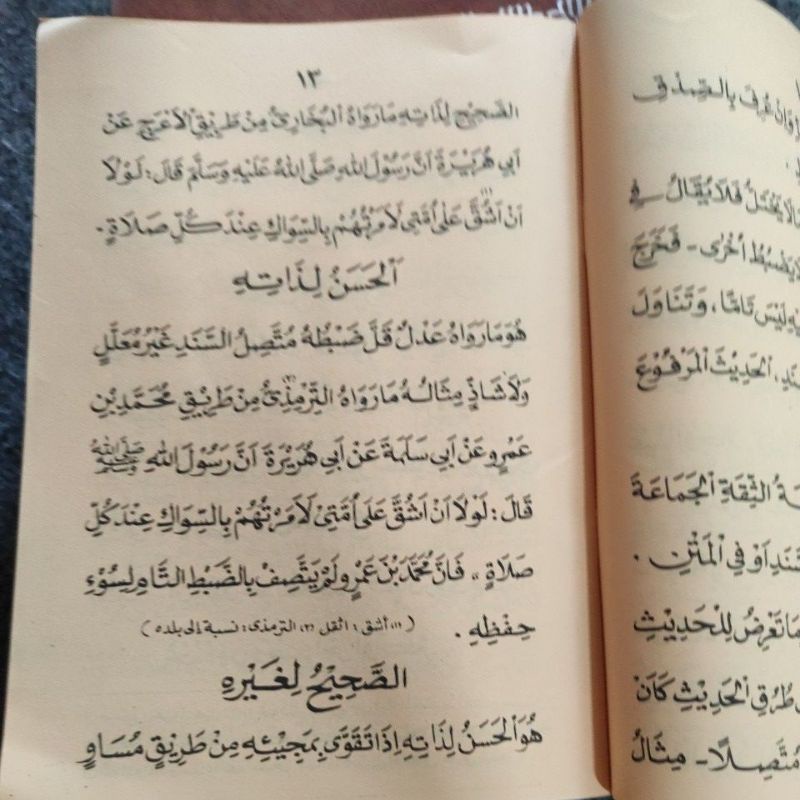 ١٣
الصَّحِيْحِ لِذَاتِهِ مَا رَوَاهُ الْبُخَارِىُّ مِنْ طَرِيْقِ الْاَعْرَجِ عَنْ
اَبِي هُرَيْرَةَ اَنَّ رَسُوْلَ اللهِ صَلَّى اللهُ عَلَيْهِ وَسَلَّمَ قَالَ : لَوْلَا
اَنْ اَشُقَّ عَلَى اُمَّتِى لَاَمَرْتُهُمْ بِالسِّوَاكِ عِنْدَ كُلِّ صَلَاةٍ -
اَلْحَسَنُ لِذَاتِهِ
هُوَ مَا رَوَاهُ عَدْلٌ قَلَّ ضَبْطُهُ مُتَّصِلُ السَّنَدِ غَيْرُ مُعَلَّلٍ
وَلَا شَاذٍّ مِثَالُهُ مَا رَوَاهُ التِّرْمِذِىُّ مِنْ طَرِيْقِ مُحَمَّدِ بْنِ
عَمْرٍو عَنْ اَبِي سَلَمَةَ عَنْ اَبِي هُرَيْرَةَ اَنَّ رَسُوْلَ اللهِ ﷺ
قَالَ : لَوْلَا اَنْ اَشُقَّ عَلَى اُمَّتِىْ لَاَمَرْتُهُمْ بِالسِّوَاكِ عِنْدَ كُلِّ
صَلَاةٍ ،، فَاِنَّ مُحَمَّدَ بْنَ عَمْرٍو لَمْ يَتَّصِفْ بِالضَّبْطِ التَّامِ لِسُوْءِ
حِفْظِهِ . ( (١) أشق : اثقل (٢) الترمذى : نسبة إلى بلده )
الصَّحِيْحُ لِغَيْرِهِ
هُوَ الْحَسَنُ لِذَاتِهِ اِذَا تَقَوَّى بِمَجِيْئِهِ مِنْ طَرِيْقٍ مُسَاوٍ
وَاِنْ عُرِفَ بِالصِّدْقِ
فَلَا يُقَالُ فِي
اُخْرٰى - فَخَرَجَ
لَيْسَ تَامًّا ، وَتَنَاوَلَ
الْحَدِيْثَ الْمَرْفُوْعَ
الثِّقَةِ الْجَمَاعَةَ
اَوْ فِي الْمَتْنِ .
تَعَرَّضَ لِلْحَدِيْثِ
طُرُقِ الْحَدِيْثِ كَانَ
مُتَّصِلًا - مِثَالُ